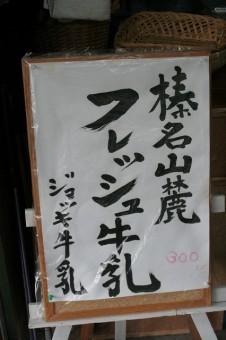 榛名山麓
フレッシュ牛乳
ジョッキ牛乳
300